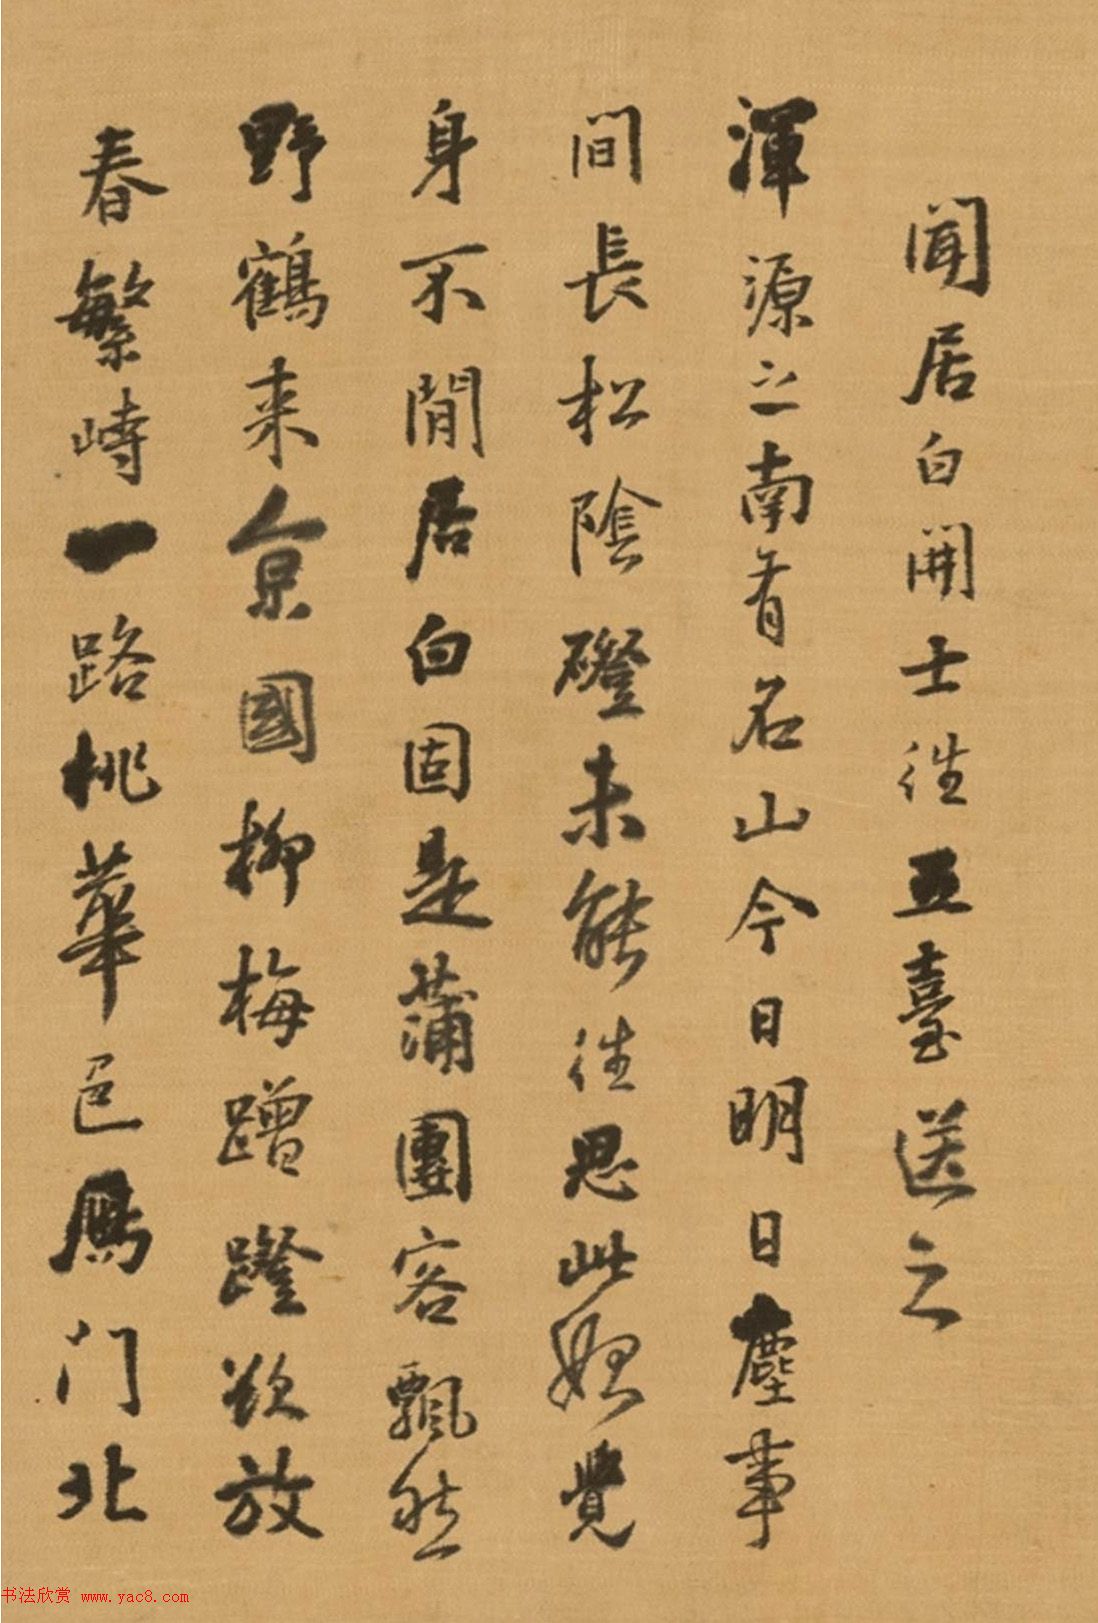 聞居白開士往五臺送之
渾源之南有名山今日明日塵事
間長松陰磴未能往思此始覺
身不閒居白固是蒲團客飄然
野鶴来京國柳梅蹭蹬欲放
春繁峙一路桃華色鴈门北
书法欣赏 www.yac8.com